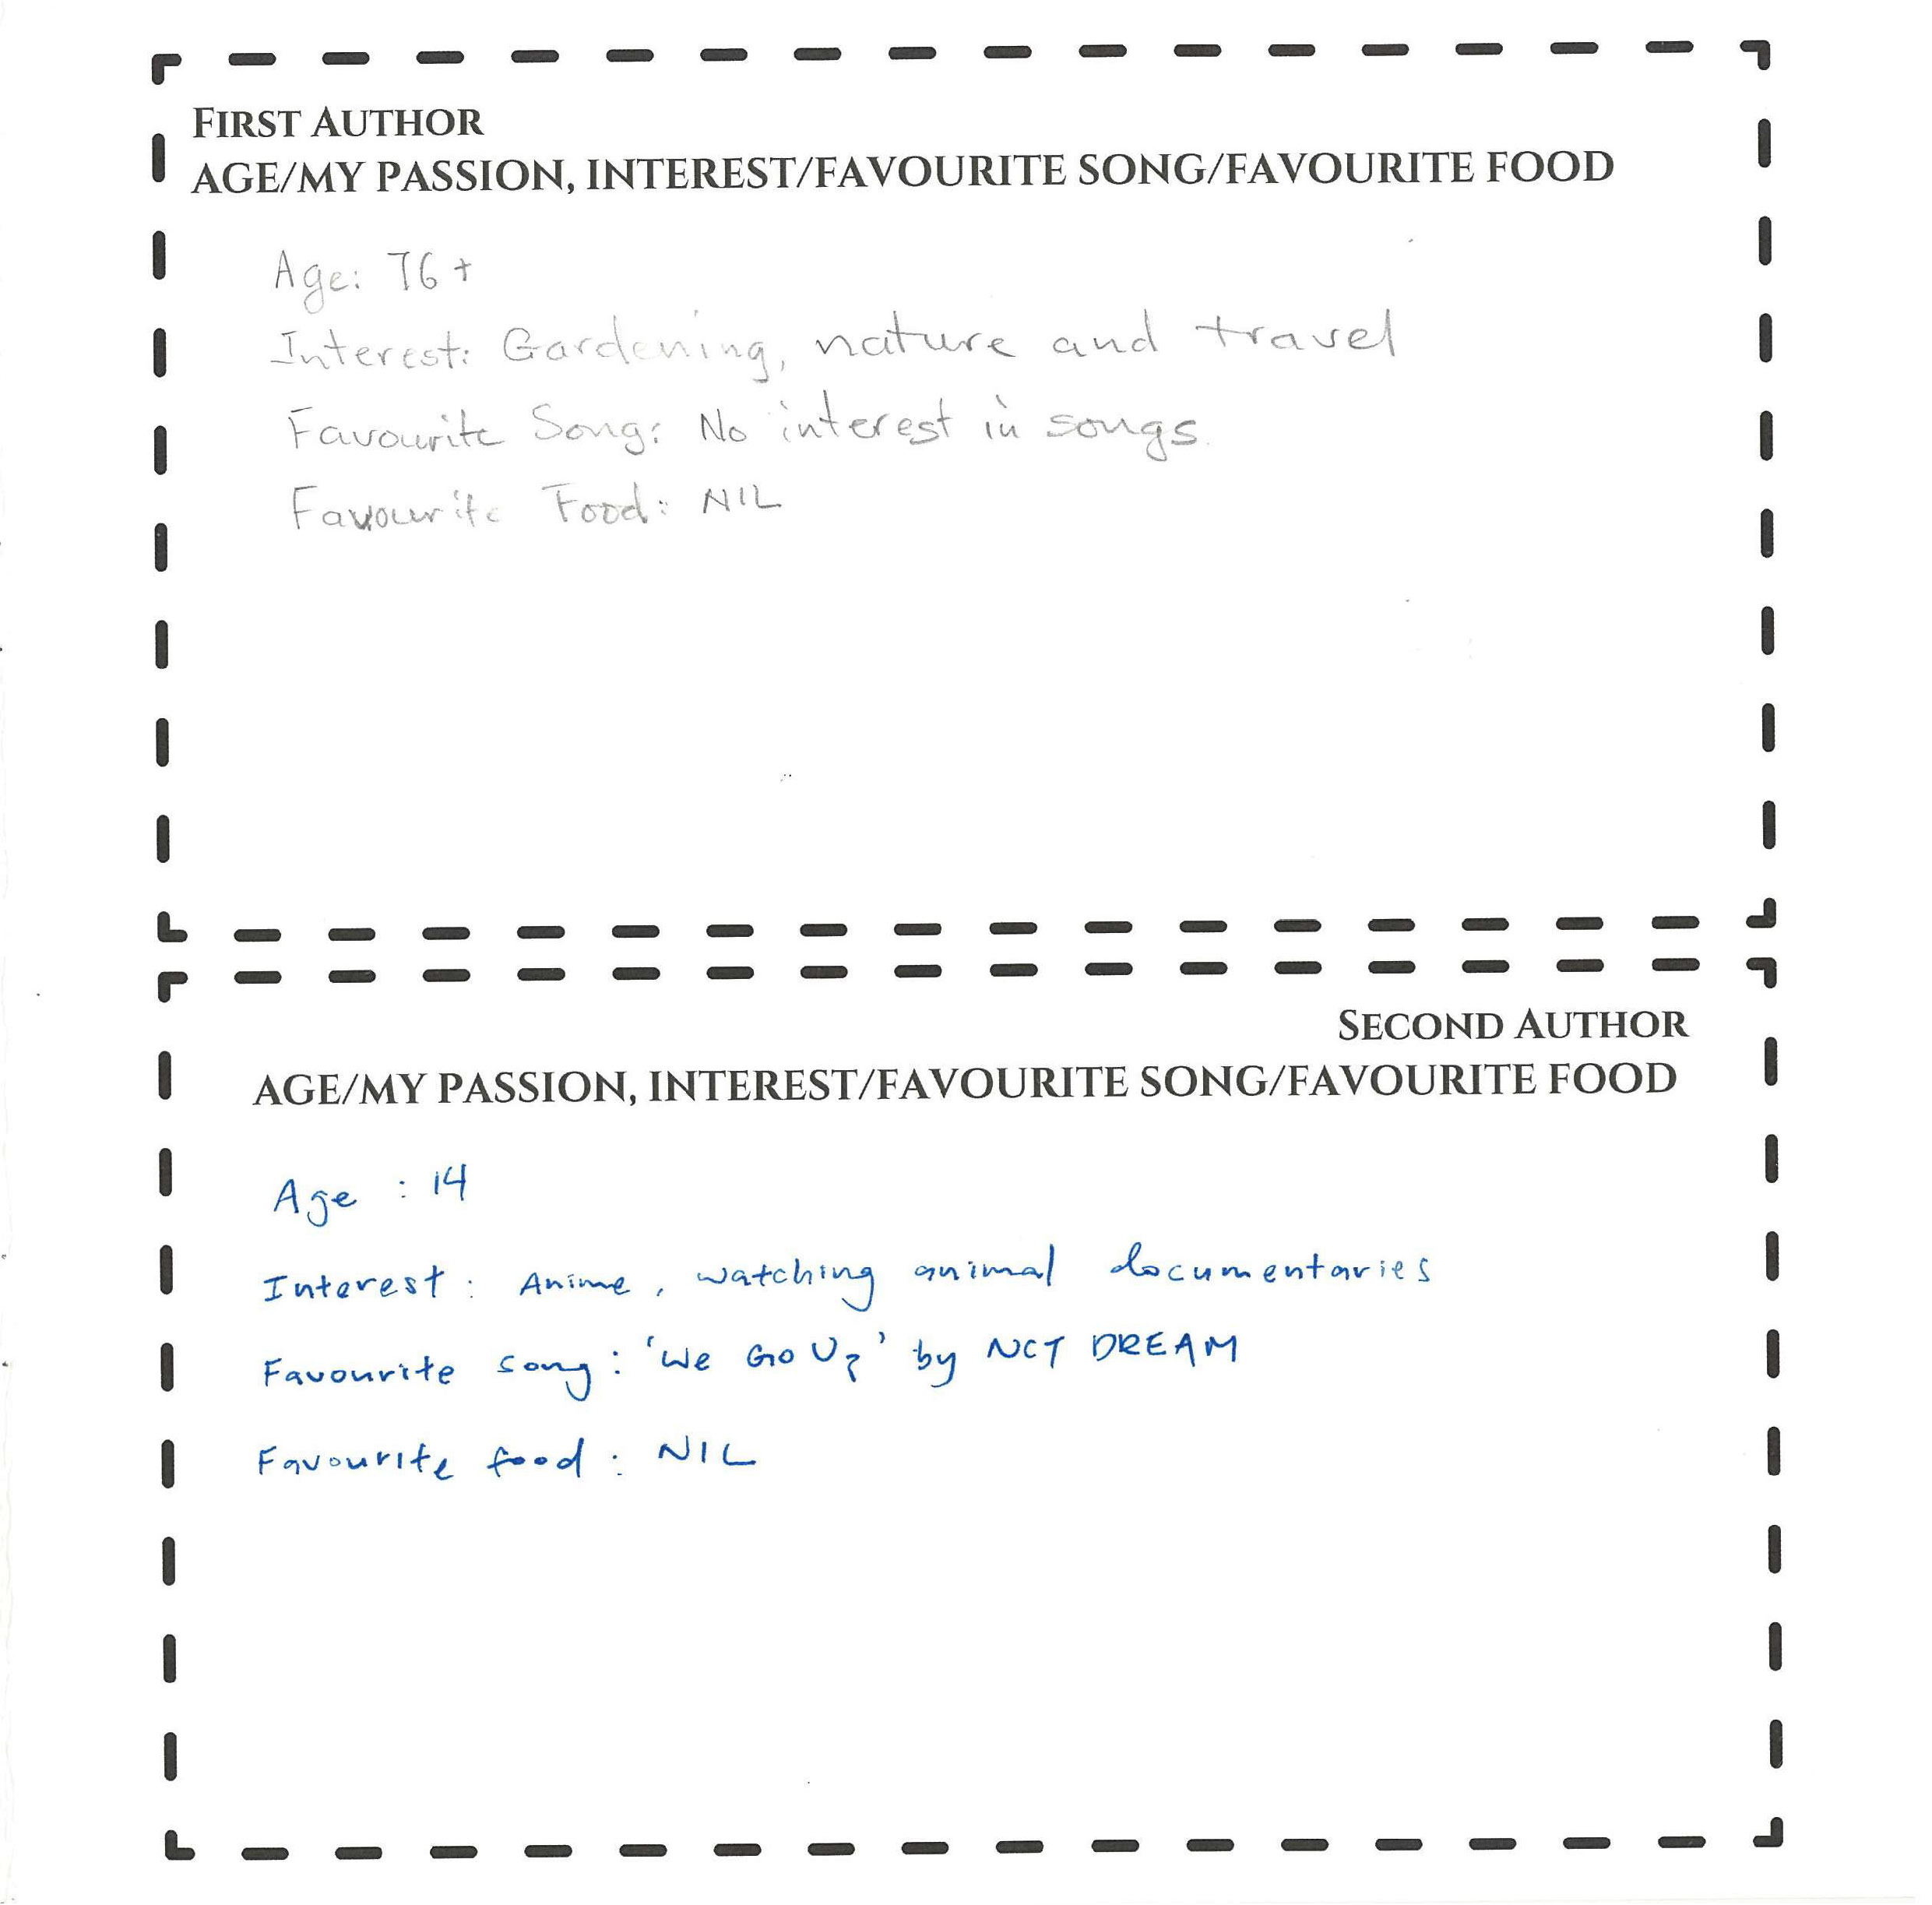 FIRST AUTHOR
AGE/MY PASSION, INTEREST/FAVOURITE SONG/FAVOURITE FOOD
Age: 76+
Interest: Gardening, nature and travel
Favourite Song: No interest in songs.
Favourite Food: NIL
SECOND AUTHOR
AGE/MY PASSION, INTEREST/FAVOURITE SONG/FAVOURITE FOOD
Age : 14
Interest : Anime, watching animal documentaries
Favourite song : 'We Go Up' by NCT DREAM
Favourite food : NIL